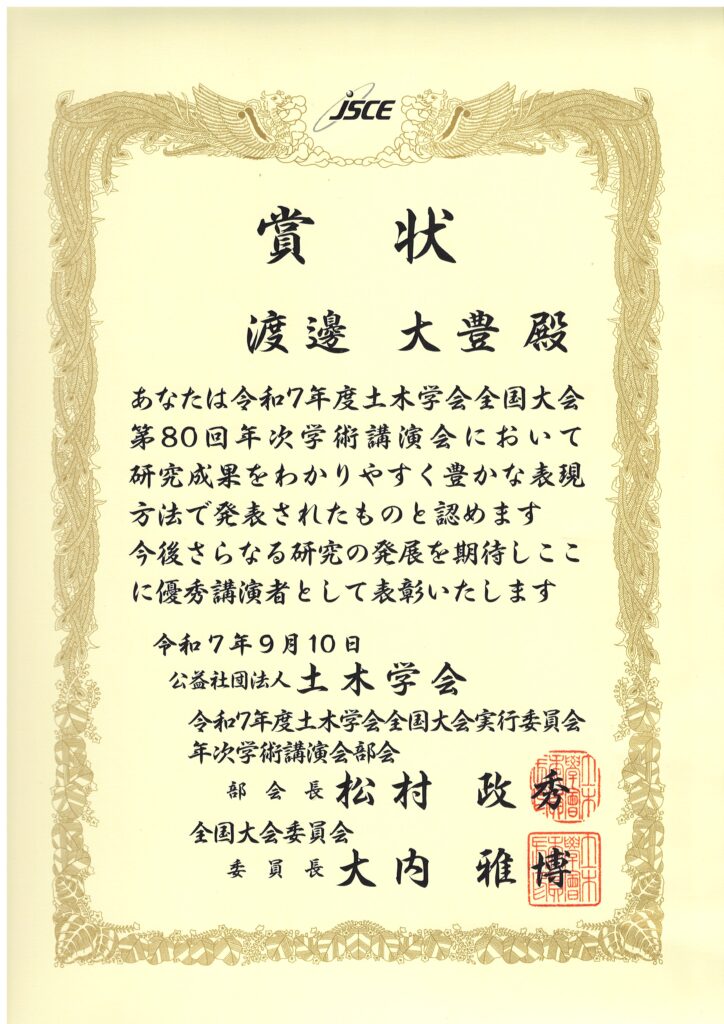 JSCE
賞状
渡邊 大豊 殿
あなたは令和7年度土木学会全国大会
第80回年次学術講演会において
研究成果をわかりやすく豊かな表現
方法で発表されたものと認めます
今後さらなる研究の発展を期待しここ
に優秀講演者として表彰いたします
令和7年9月10日
公益社団法人 土木学会
令和7年度土木学会全国大会実行委員会
年次学術講演会部会
部会長 松村 政秀
全国大会委員会
委員長 大内 雅博